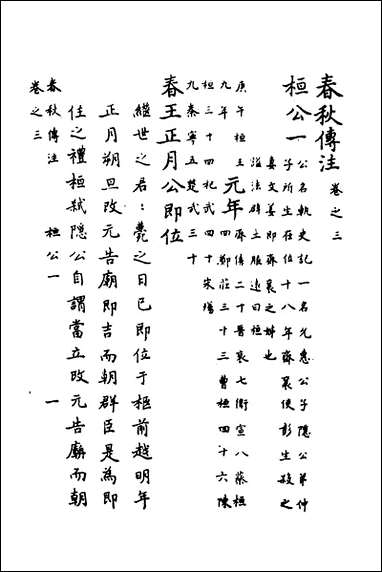 春秋傳注 卷之三
桓公一
公名軌史記一名允惠公子隱公弟仲
子所生在位十八年齊襄使彭生殺之
妻文姜即齊襄之妹也
諡法辟土服遠曰桓
庚午桓王
九年
元年
齊僖二十晉哀七衛宣八蔡桓
四鄭莊三十三曹桓四十六陳
桓三十四杞武四十宋殤
九秦寧五楚武三十
春王正月公即位
繼世之君:薨之日已即位于柩前越明年
正月朔旦改元告廟即吉而朝群臣是為即
位之禮桓弒隱公自謂當立改元告廟而朝
春秋傳注 桓公一 一
卷之三